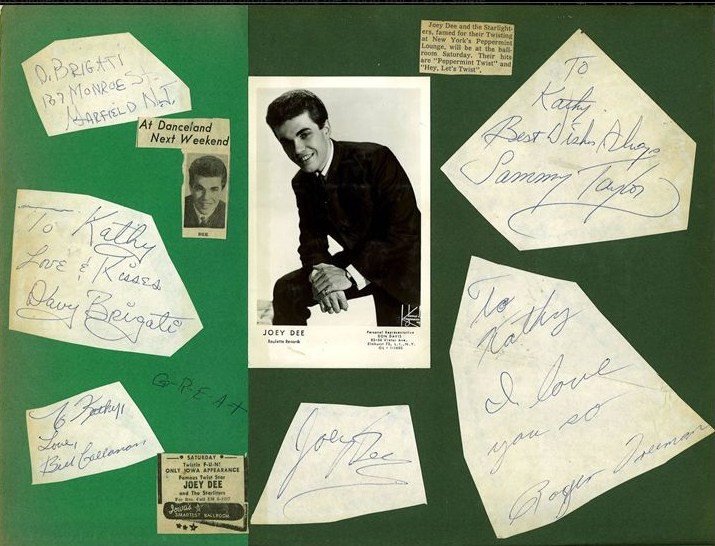 D. BRIGATI
137 MONROE ST.
GARFIELD N.J
At Danceland
Next Weekend
DEE
To Kathy
Love & Kisses
Davy Brigati
G-R-E-A-t
To Kathy,
Love,
Bill Callanan
SATURDAY
Twistin F-U-N!
ONLY IOWA APPEARANCE
Famous Twist Star
JOEY DEE
and The Starliters
Iowa's
SMARTEST BALLROOM
JOEY DEE
Roulette Records
Personal Representative
DON DAVIS
Joey Dee
Joey Dee and the Starlight-
ers, famed for their Twisting
at New York's Peppermint
Lounge, will be at the ball-
room Saturday. Their hits
are "Peppermint Twist" and
"Hey, Let's Twist".
TO
Kathy
Best Wishes Always
Sammy Taylor
To
Kathy
I love
you so
Roger Freeman